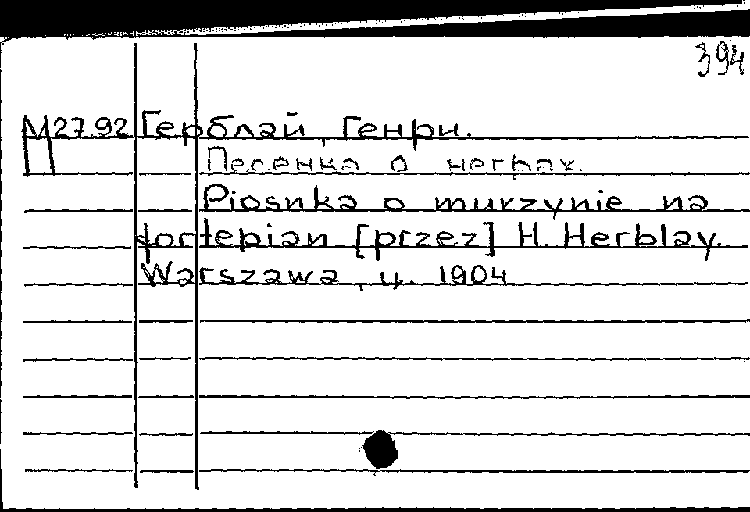 394
М27.92 Герблай, Генри.
Песенка о неграх.
Piosnka o murzynie na
fortepian [przez] H. Herblay.
Warszawa, ц. 1904